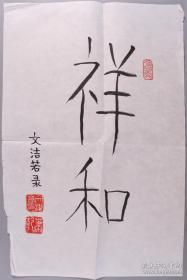 祥和
文洁若录